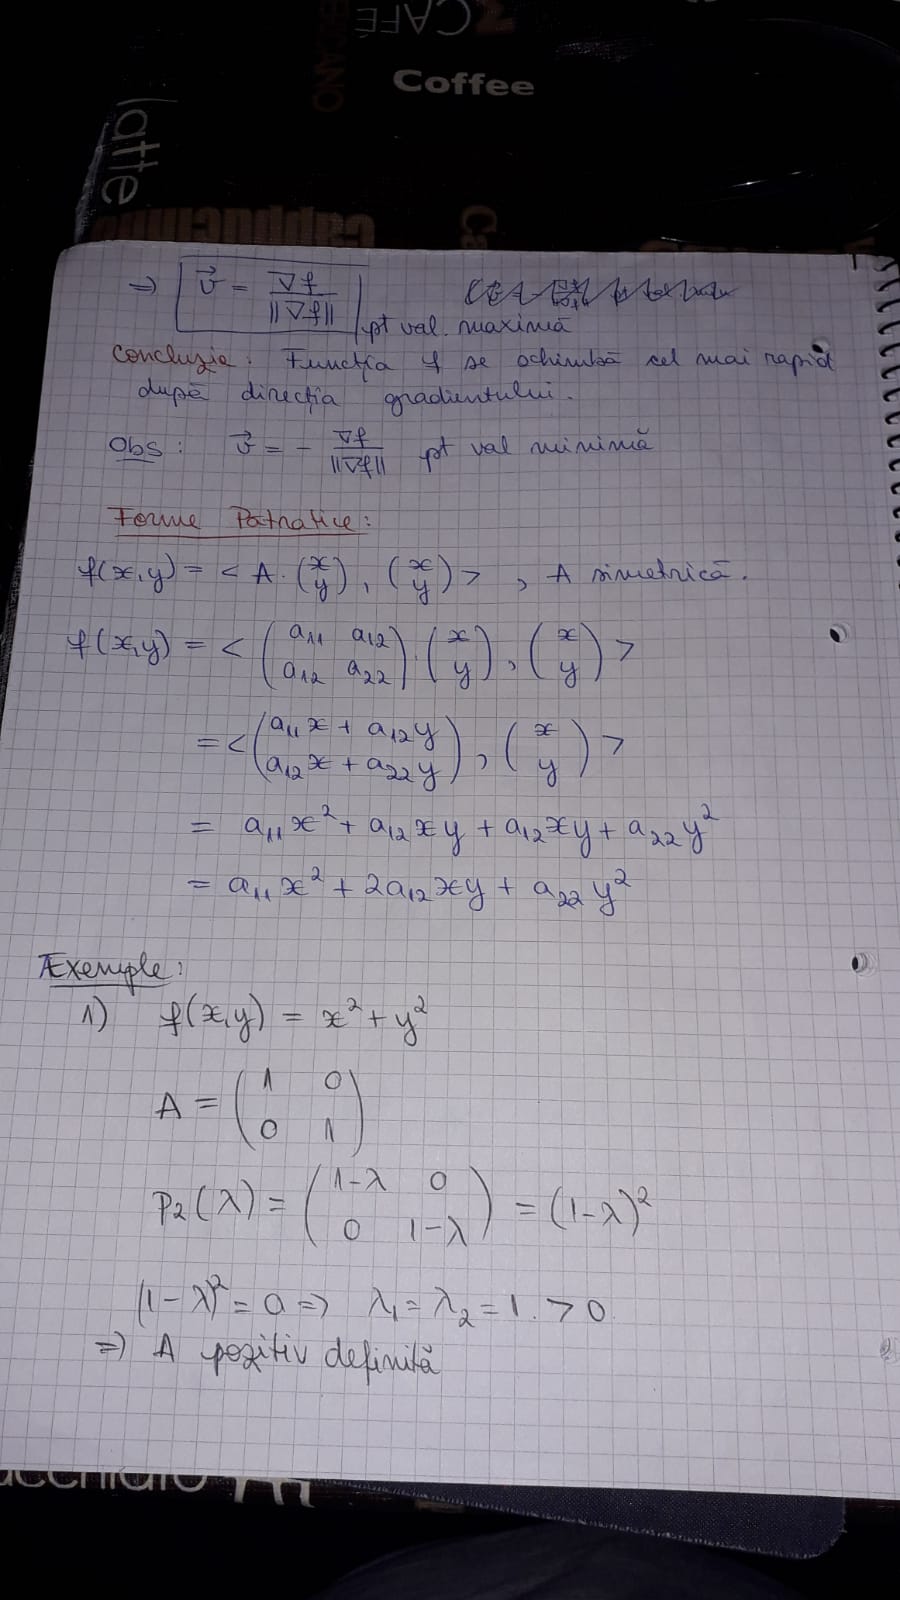 CAFÉ
Coffee
latte
cappuccino
Ca
⇒ v⃗ = ∇f / ||∇f|| pt val. maximă
Concluzie: Funcția f se schimbă cel mai rapid
după direcția gradientului.
Obs: v⃗ = - ∇f / ||∇f|| pt val minimă
Forme Patratice:
f(x,y) = < A·(x y), (x y) >, A simetrică.
f(x,y) = < (a11 a12 a12 a22)·(x y), (x y) >
= < (a11x + a12y a12x + a22y), (x y) >
= a11x² + a12xy + a12xy + a22y²
= a11x² + 2a12xy + a22y²
Exemple:
1) f(x,y) = x² + y²
A = (1 0 0 1)
P2(λ) = (1-λ 0 0 1-λ) = (1-λ)²
(1-λ)² = 0 ⇒ λ1 = λ2 = 1 > 0
⇒ A pozitiv definită